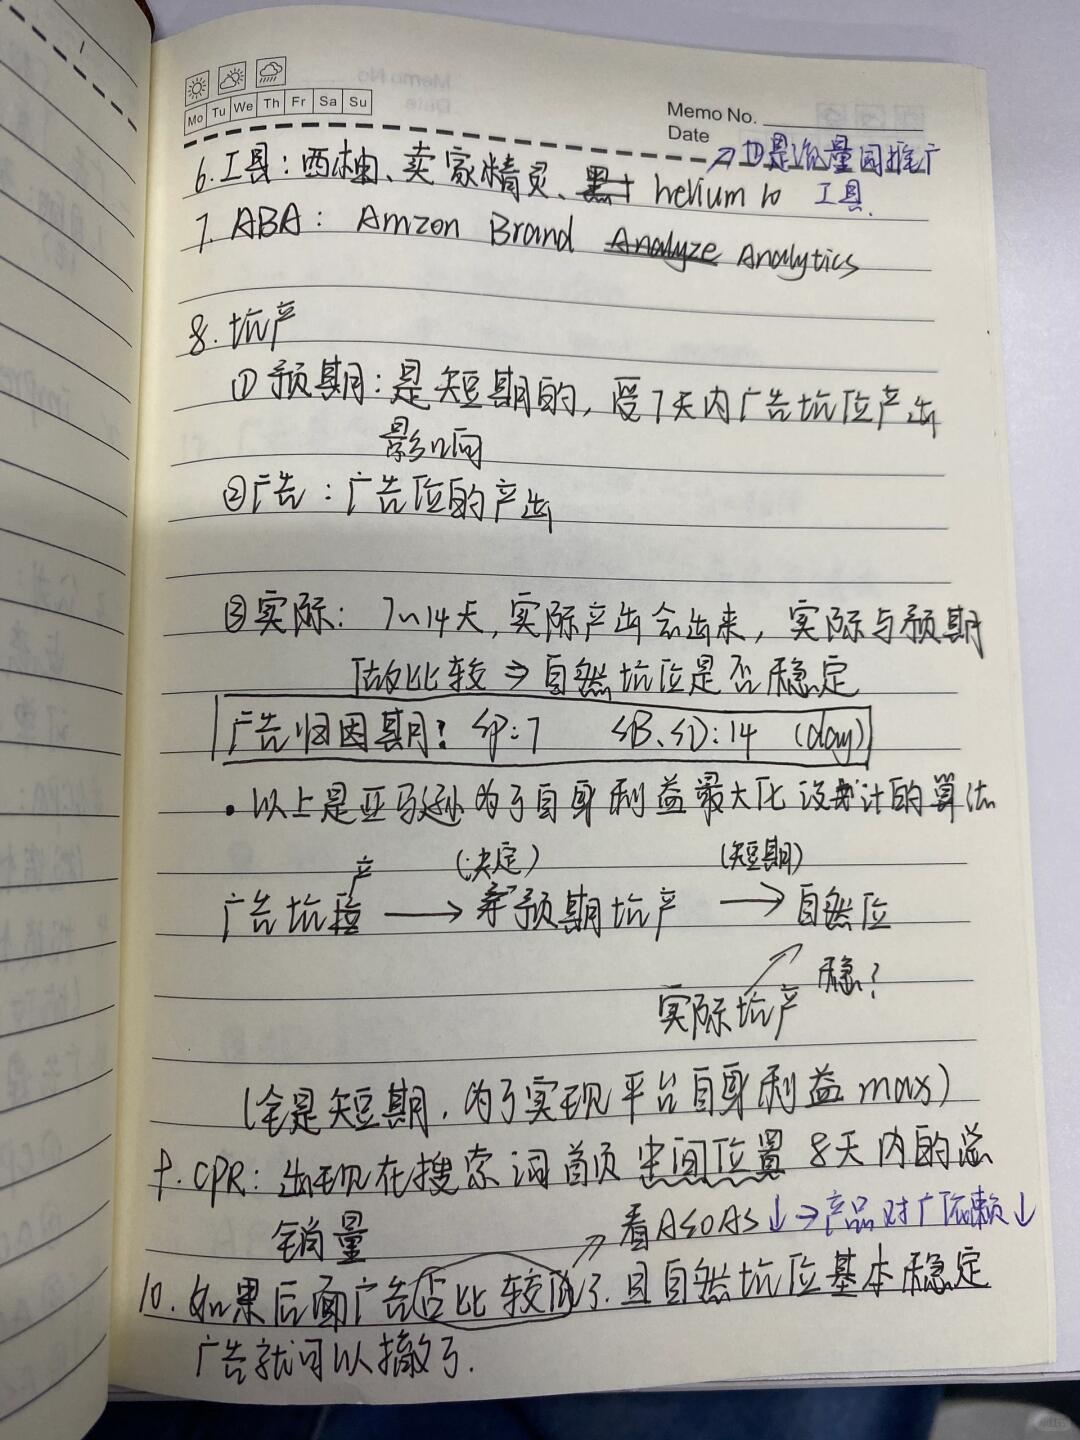 Mo Tu We Th Fr Sa Su
Memo No.
Date
6. 工具：西柚、卖家精灵、黑 helium 10
是流量 推广
工具
7. ABA： Amzon Brand Analyze Analytics
8. 坑产
① 预期：是短期的，受7天内广告坑位产出
影响
②广告：广告位的产出
③实际： 7~14天，实际产出会出来，实际与预期
做比较 ⇒ 自然坑位是否稳定
广告归因期：SP：7 SB、SD：14 (day)
• 以上是亚马逊为了自身利益最大化设计的算法
产 (决定) (短期)
广告坑 → 预期坑产 → 自然位
稳？
实际坑产
(全是短期，为了实现平台自身利益max)
9. CPR：出现在搜索词首页 中间位置 8天内的总
销量
看ASOAS↓→产品对广依赖↓
10. 如果后面广告占比较低了，且自然坑位基本稳定
广告就可以撤了.